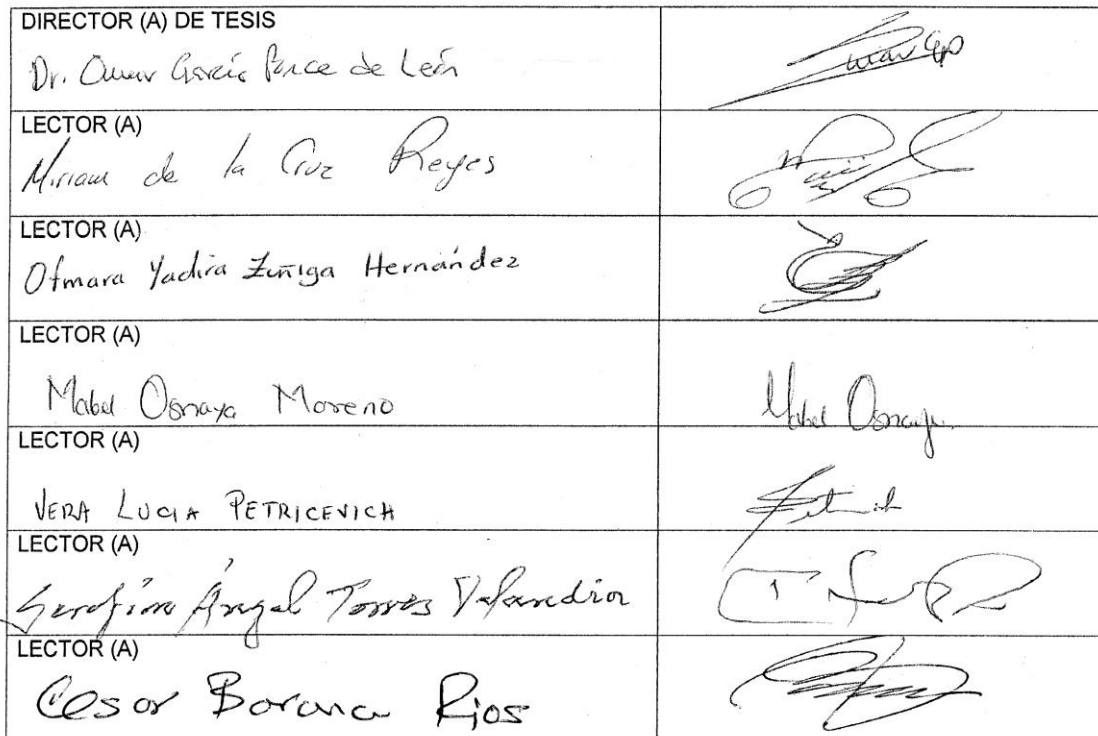 DIRECTOR (A) DE TESIS
Dr. Omar García Ponce de León
LECTOR (A)
Miriam de la Cruz Reyes
LECTOR (A)
Otmara Yadira Zuñiga Hernández
LECTOR (A)
Mabel Osnaya Moreno
Mabel Osnaya
LECTOR (A)
VERA LUCIA PETRICEVICH
LECTOR (A)
Serafín Ángel Torres
LECTOR (A)
Cesar Rios